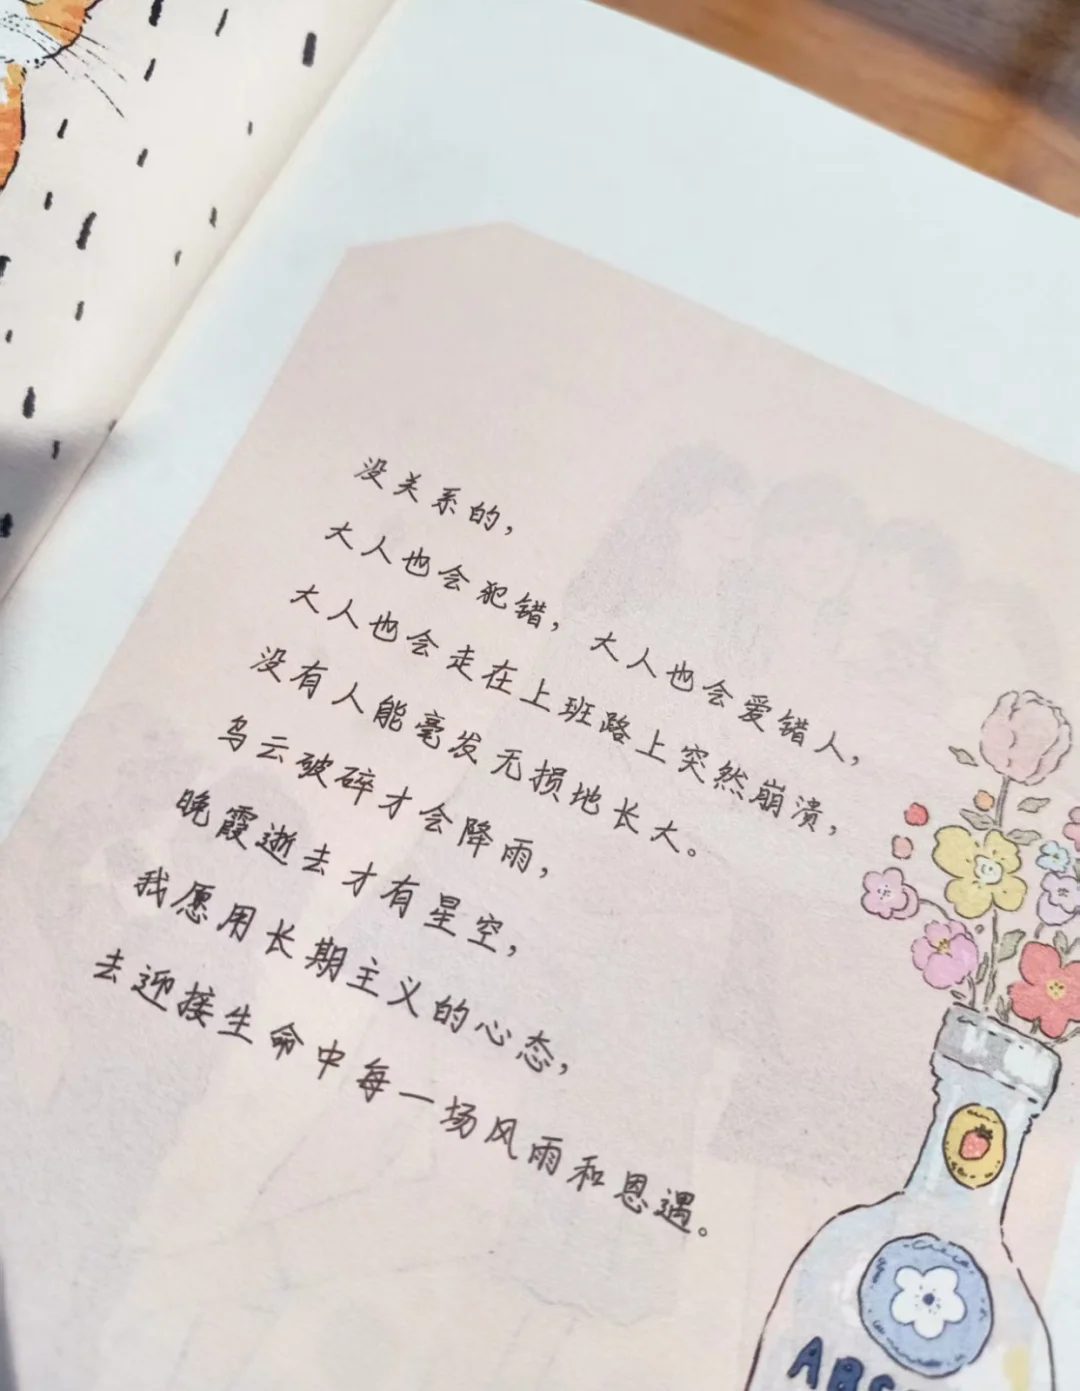 没关系的，
大人也会犯错，大人也会爱错人，
大人也会走在上班路上突然崩溃，
没有人能毫发无损地长大。
乌云破碎才会降雨，
晚霞逝去才有星空，
我愿用长期主义的心态，
去迎接生命中每一场风雨和恩遇。
ABS